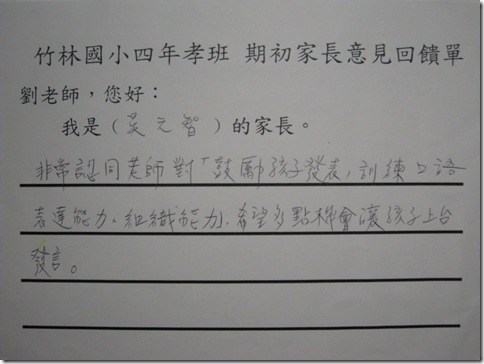 竹林國小四年孝班 期初家長意見回饋單
劉老師，您好：
我是（吳元智）的家長。
非常認同老師對「鼓勵孩子發表，訓練口語
表達能力、組織能力，希望多點機會讓孩子上台
發言。